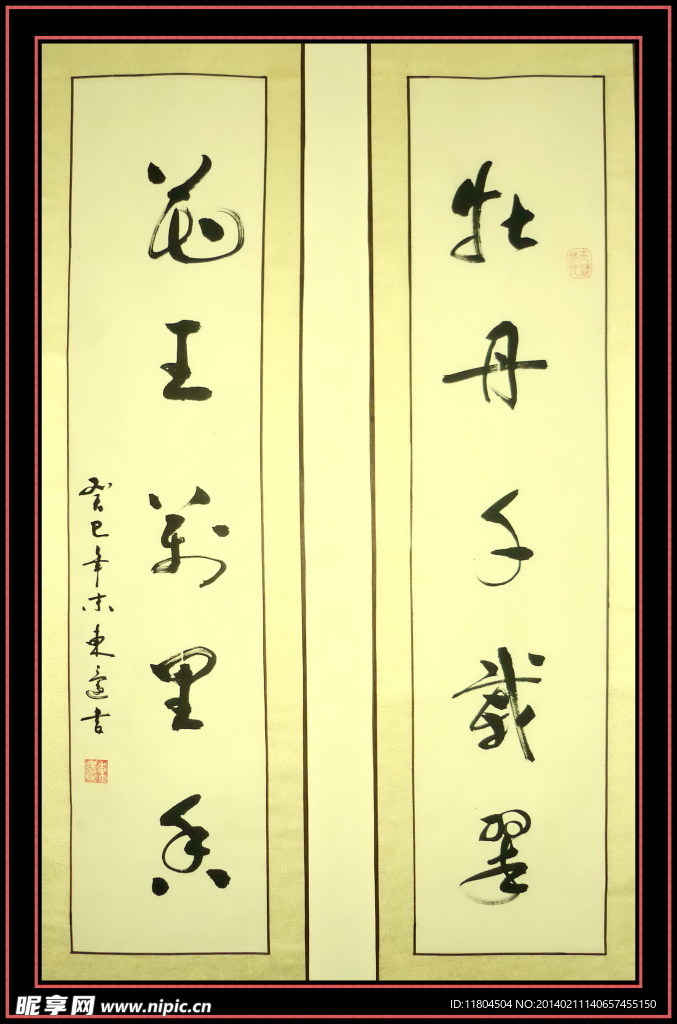 牡丹千載墨
花王萬里香
癸巳年東書
昵享网 www.nipic.cn
ID:11804504 NO:20140211140657455150